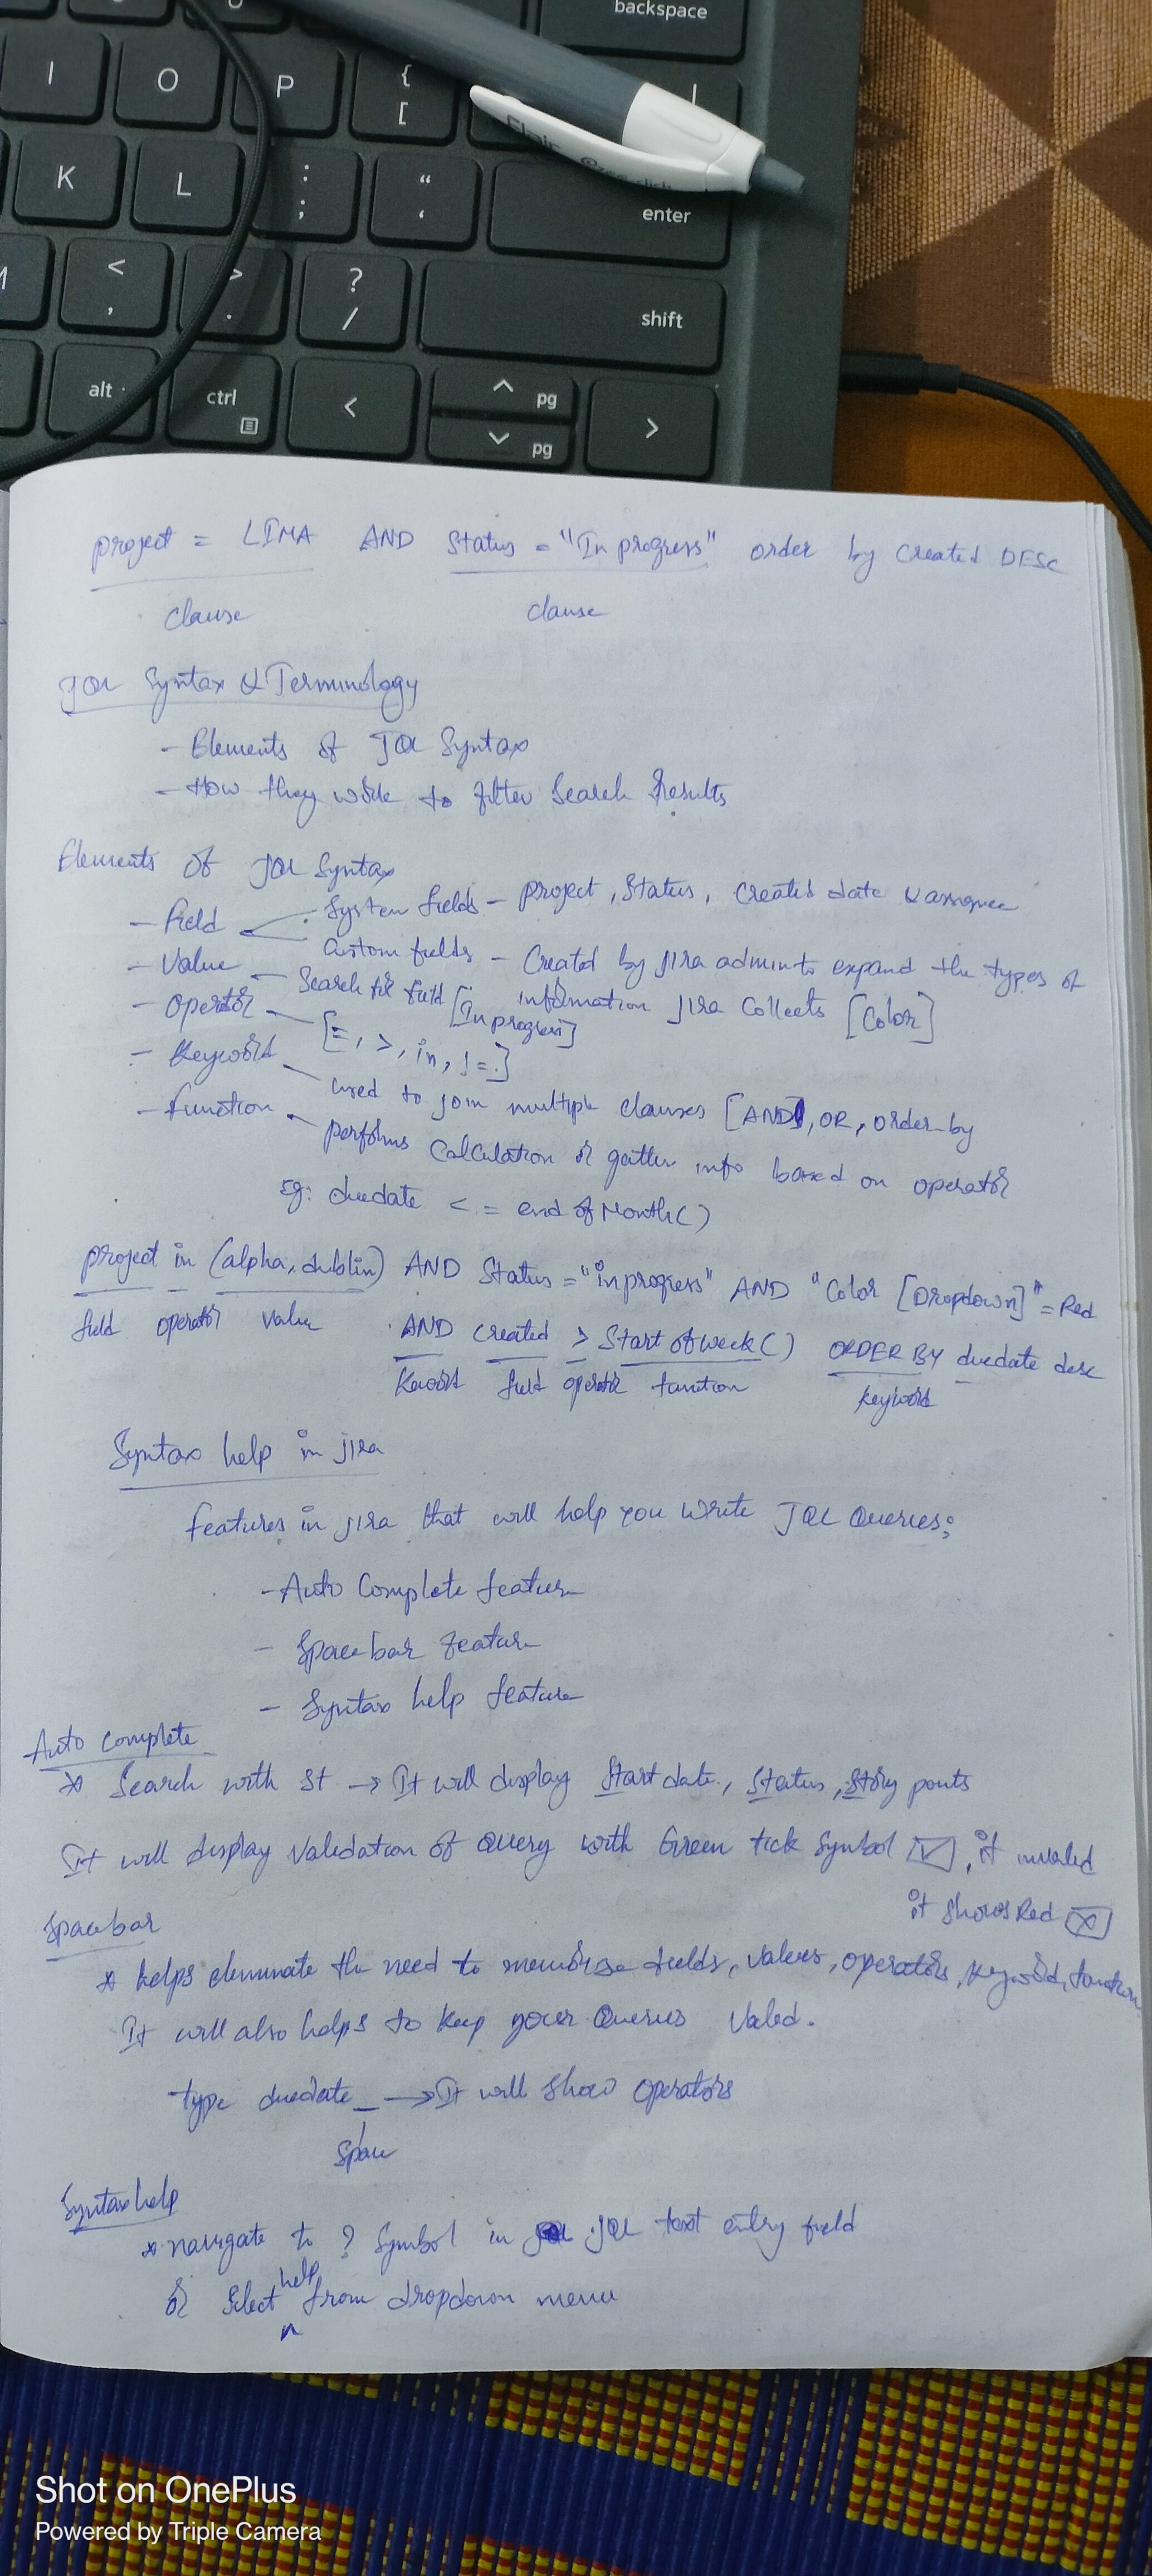 backspace
I O P { [
K L : ; " ' enter
Flair
< , > . ? / shift
alt ctrl < ^ pg >
pg
project = LIMA AND Status = "In progress" order by created DESC
clause clause
JQL Syntax & Terminology
- Elements of JQL Syntax
- How they work to filter Search Results
Elements of JQL Syntax
- Field System fields - project, Status, Created date & assignee
Custom fields - Created by jira admin to expand the types of
information jira Collects [Color]
- Value - Search for field [In progress]
- Operator - [=, >, in, !=]
- Keyword used to join multiple clauses [AND, OR, order-by
- Function - performs calculation or gather info based on operator
Eg: duedate <= endofMonth()
project in (alpha, dublin) AND Status = "in progress" AND "Color [Dropdown]" = Red
field operator value
AND created > Startofweek() ORDER BY duedate desc
Keword field operator function keyword
Syntax help in jira
features in jira that will help you write JQL Queries;
- Auto Complete feature
- Spacebar feature
- Syntax help feature
Auto complete
* Search with St → It will display Start date, Status, Story points
It will display Validation of Query with Green tick Symbol ✓, if invalid
it shows Red x
Spacebar
* helps eliminate the need to memorise fields, values, operators, keyword, function
It will also helps to keep your Queries Valid.
type duedate_ → It will show operators
Space
Syntax help
* navigate to ? Symbol in JQL text entry field
or Select help from dropdown menu
Shot on OnePlus
Powered by Triple Camera